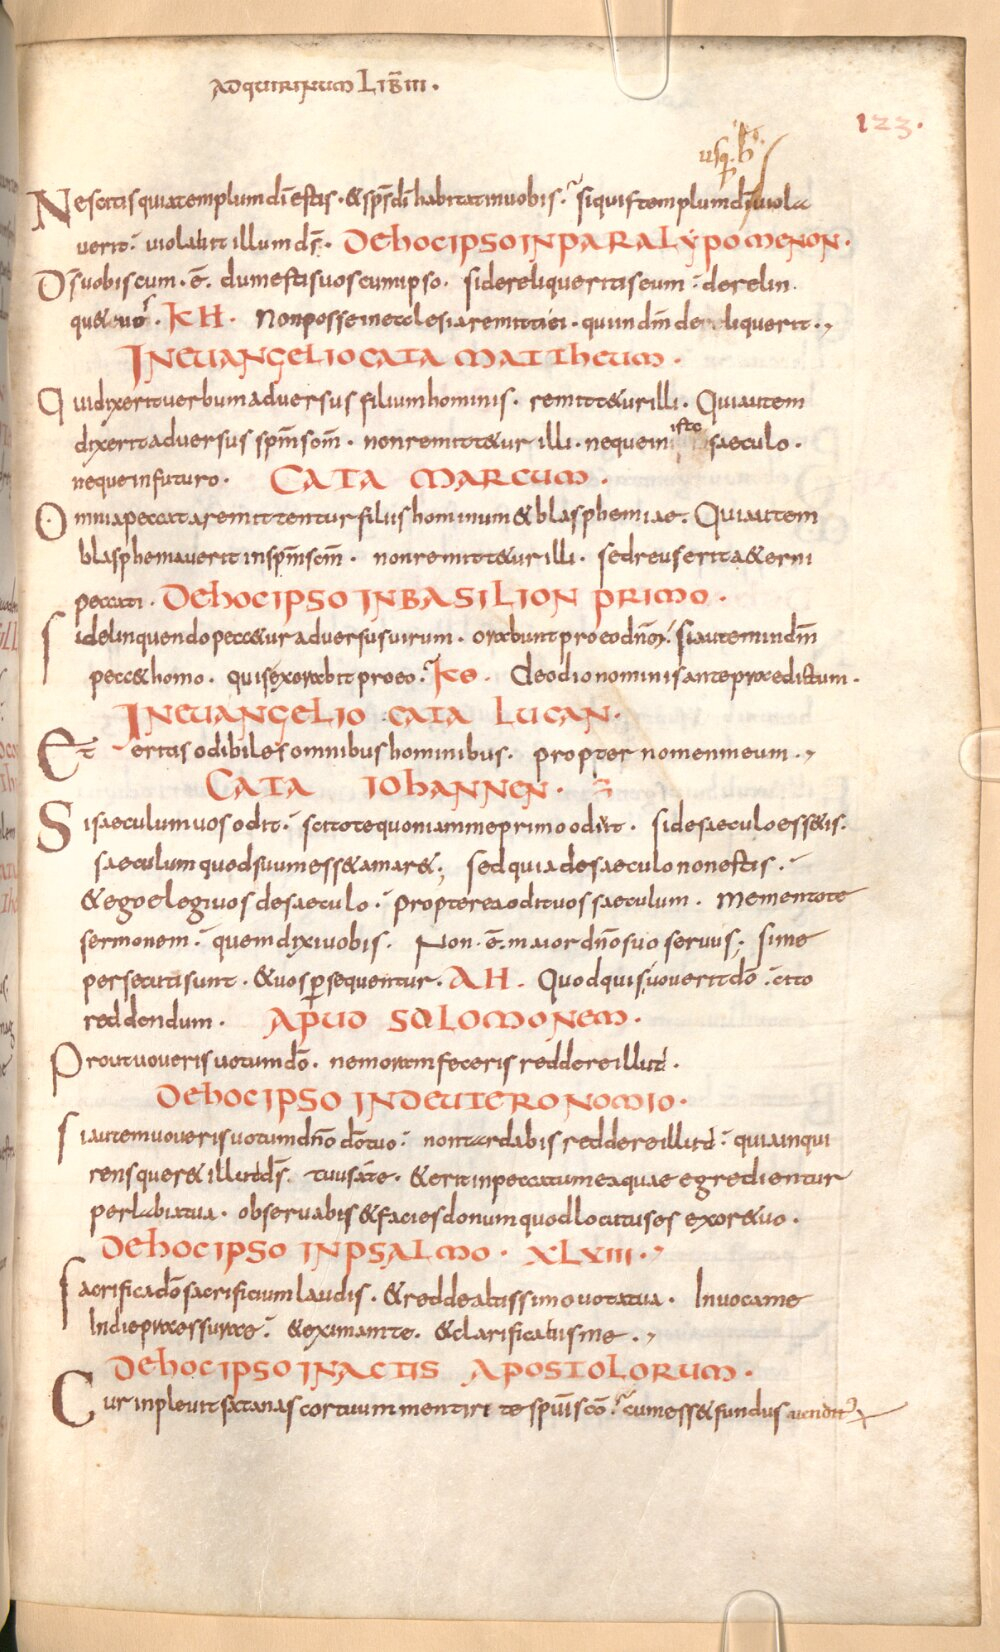 ADQUIRINUM LIB̅ III ·
123·
usq; h̅
Nescitis quia templum dī estis · & sp̄s dī habitat in vobis · si quis templum dī viola
verit · violabit illum ds̄ · DE HOC IPSO IN PARALYPOMENON ·
Ds vobiscum · ē · dum estis vos cum ipso · si dereliqueritis eum · derelin
qu& vos · KH · Non posse in ecclesia remitti ei · qui in dm̄ dereliquerit ·,
IN EUANGELIO CATA MATTHEUM ·
Qui dixerit verbum adversus filium hominis · remitt&ur illi · Qui autem
dixerit adversus spm̄ scm̄ · non remitt&ur illi · neque in isto saeculo ·
neque in futuro · CATA MARCUM ·
Omnia peccata remittentur filiis hominum & blasphemiae · Qui autem
blasphemaverit in spm̄ scm̄ · non remitt&ur illi · sed reus erit a&erni
peccati · DE HOC IPSO IN BASILION PRIMO ·
si delinquendo pecc&ur adversus virum · orabunt pro eo dnō · si autem in dm̄
pecc& homo · quis exorabit pro eo · KΘ · De odio nominis ante praedictum ·
IN EUANGELIO CATA LUCAN ·
Et eritis odibiles omnibus hominibus · propter nomen meum ·,
CATA IOHANNEN ·
Si saeculum vos odit · scitote quoniam me primo odiit · si de saeculo ess&is ·
saeculum quod suum ess& amar&; sed quia de saeculo non estis ·
& ego elegi vos de saeculo · propterea odit vos saeculum · Mementote
sermonem · quem dixi vobis · Non · ē · maior dnō suo servus; si me
persecuti sunt · & vos persequentur · AH · Quod quis voverit dō · cito
reddendum · APUD SOLOMONEM ·
Prout voveris votum dō · ne moram feceris reddere illud ·
DE HOC IPSO IN DEUTERONOMIO ·
si autem voveris votum dnō dō tuo · non tardabis reddere illud · quia inqui
rens quer& illud ds̄ · tuus a te · & erit in peccatum ea quae egredientur
per labia tua · observabis & facies donum quod locutus es ex ore tuo ·
DE HOC IPSO IN PSALMO · XLVIIII ·,
sacrifica dō sacrificium laudis · & redde altissimo vota tua · Invoca me
In die pressurae · & eximam te · & clarificabis me ·,
DE HOC IPSO IN ACTIS APOSTOLORUM ·
Cur inplevit satanas cor tuum mentiri te spūi scō · cum ess& fundus